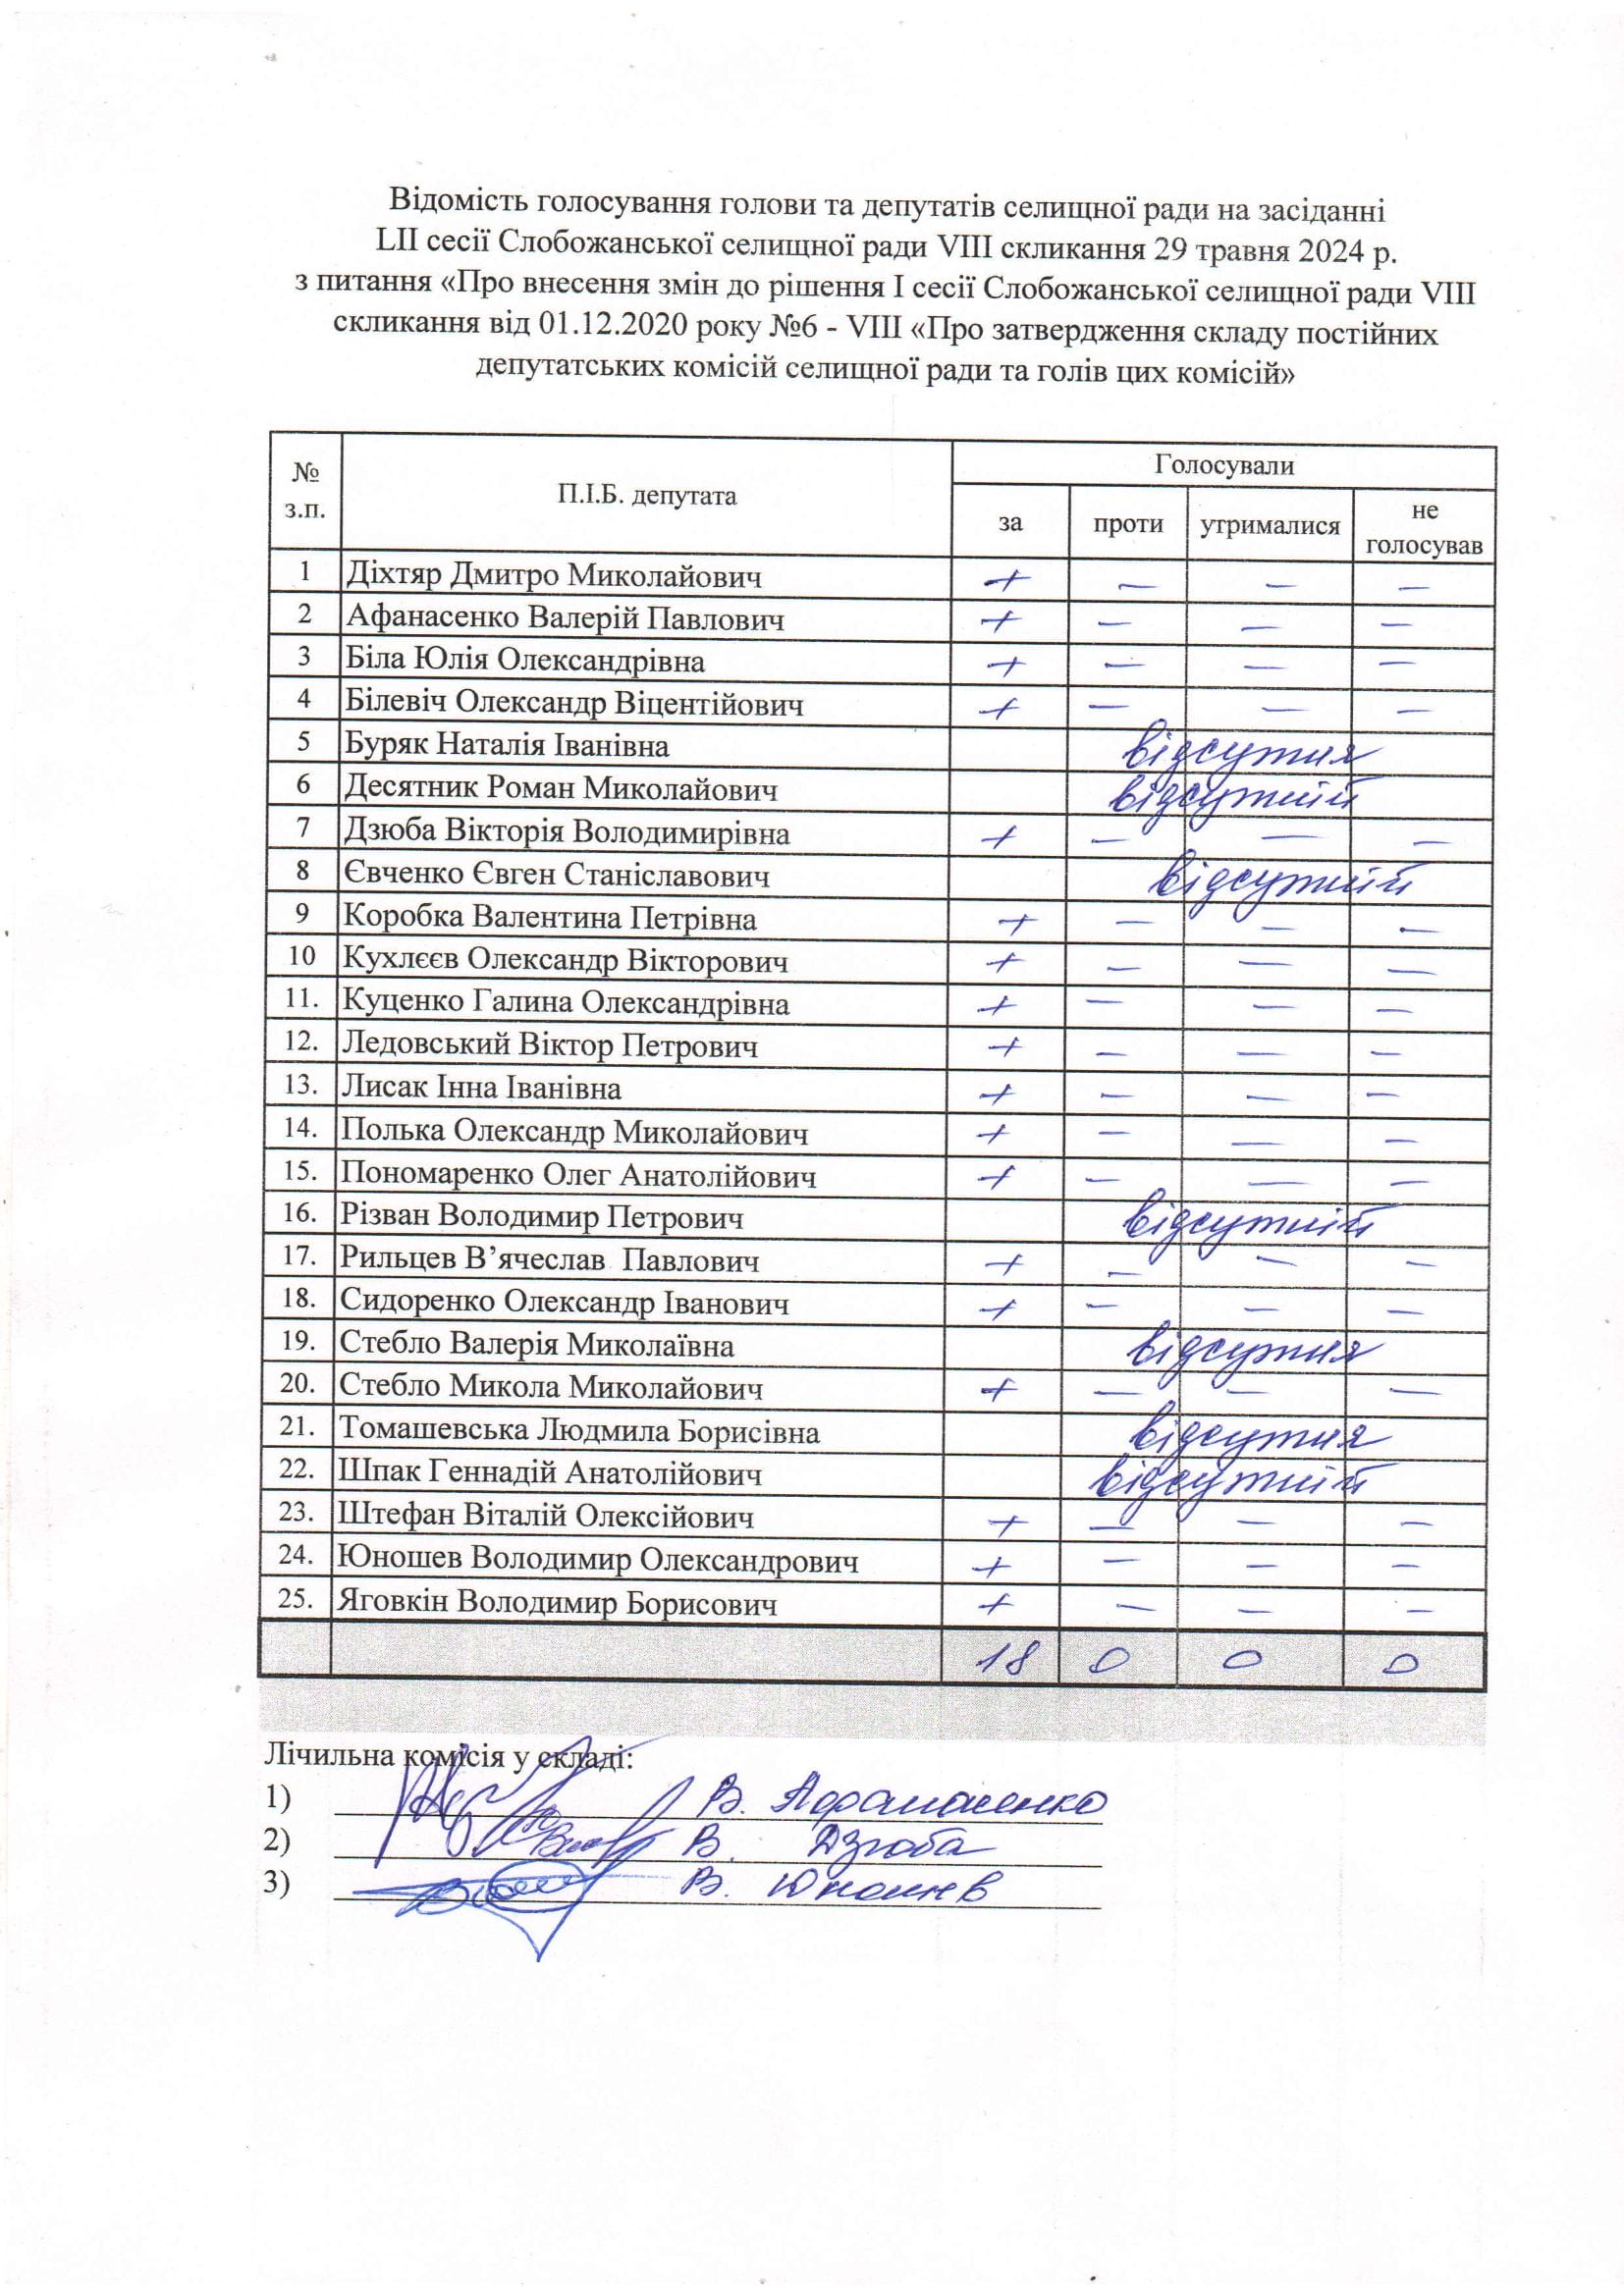 Відомість голосування голови та депутатів селищної ради на засіданні
LII сесії Слобожанської селищної ради VIII скликання 29 травня 2024 р.
з питання «Про внесення змін до рішення I сесії Слобожанської селищної ради VIII
скликання від 01.12.2020 року №6 - VIII «Про затвердження складу постійних
депутатських комісій селищної ради та голів цих комісій»
№ з.п. П.І.Б. депутата Голосували
за проти утрималися не голосував
1 Діхтяр Дмитро Миколайович + — — —
2 Афанасенко Валерій Павлович + — — —
3 Біла Юлія Олександрівна + — — —
4 Білевіч Олександр Віцентійович + — — —
5 Буряк Наталія Іванівна відсутня
6 Десятник Роман Миколайович відсутній
7 Дзюба Вікторія Володимирівна + — — —
8 Євченко Євген Станіславович відсутній
9 Коробка Валентина Петрівна + — — —
10 Кухлєєв Олександр Вікторович + — — —
11. Куценко Галина Олександрівна + — — —
12. Ледовський Віктор Петрович + — — —
13. Лисак Інна Іванівна + — — —
14. Полька Олександр Миколайович + — — —
15. Пономаренко Олег Анатолійович + — — —
16. Різван Володимир Петрович відсутній
17. Рильцев В’ячеслав Павлович + — — —
18. Сидоренко Олександр Іванович + — — —
19. Стебло Валерія Миколаївна відсутня
20. Стебло Микола Миколайович + — — —
21. Томашевська Людмила Борисівна відсутня
22. Шпак Геннадій Анатолійович відсутній
23. Штефан Віталій Олексійович + — — —
24. Юношев Володимир Олександрович + — — —
25. Яговкін Володимир Борисович + — — —
18 0 0 0
Лічильна комісія у складі:
1) В. Афанасенко
2) В. Дзюба
3) В. Юношев